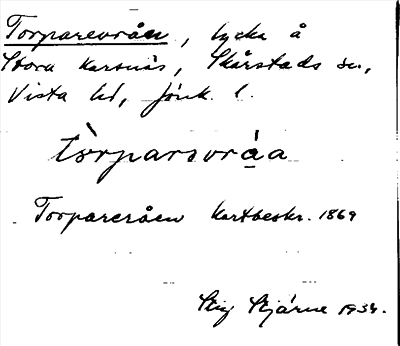 Torparevrån, lycka å
Stora Kartnäs, Skärstads sn,
Vista hd, Jönk. l.
tòrparsvráa
Torparevråen Kartbeskr. 1869
Stig Stjärne 1934.